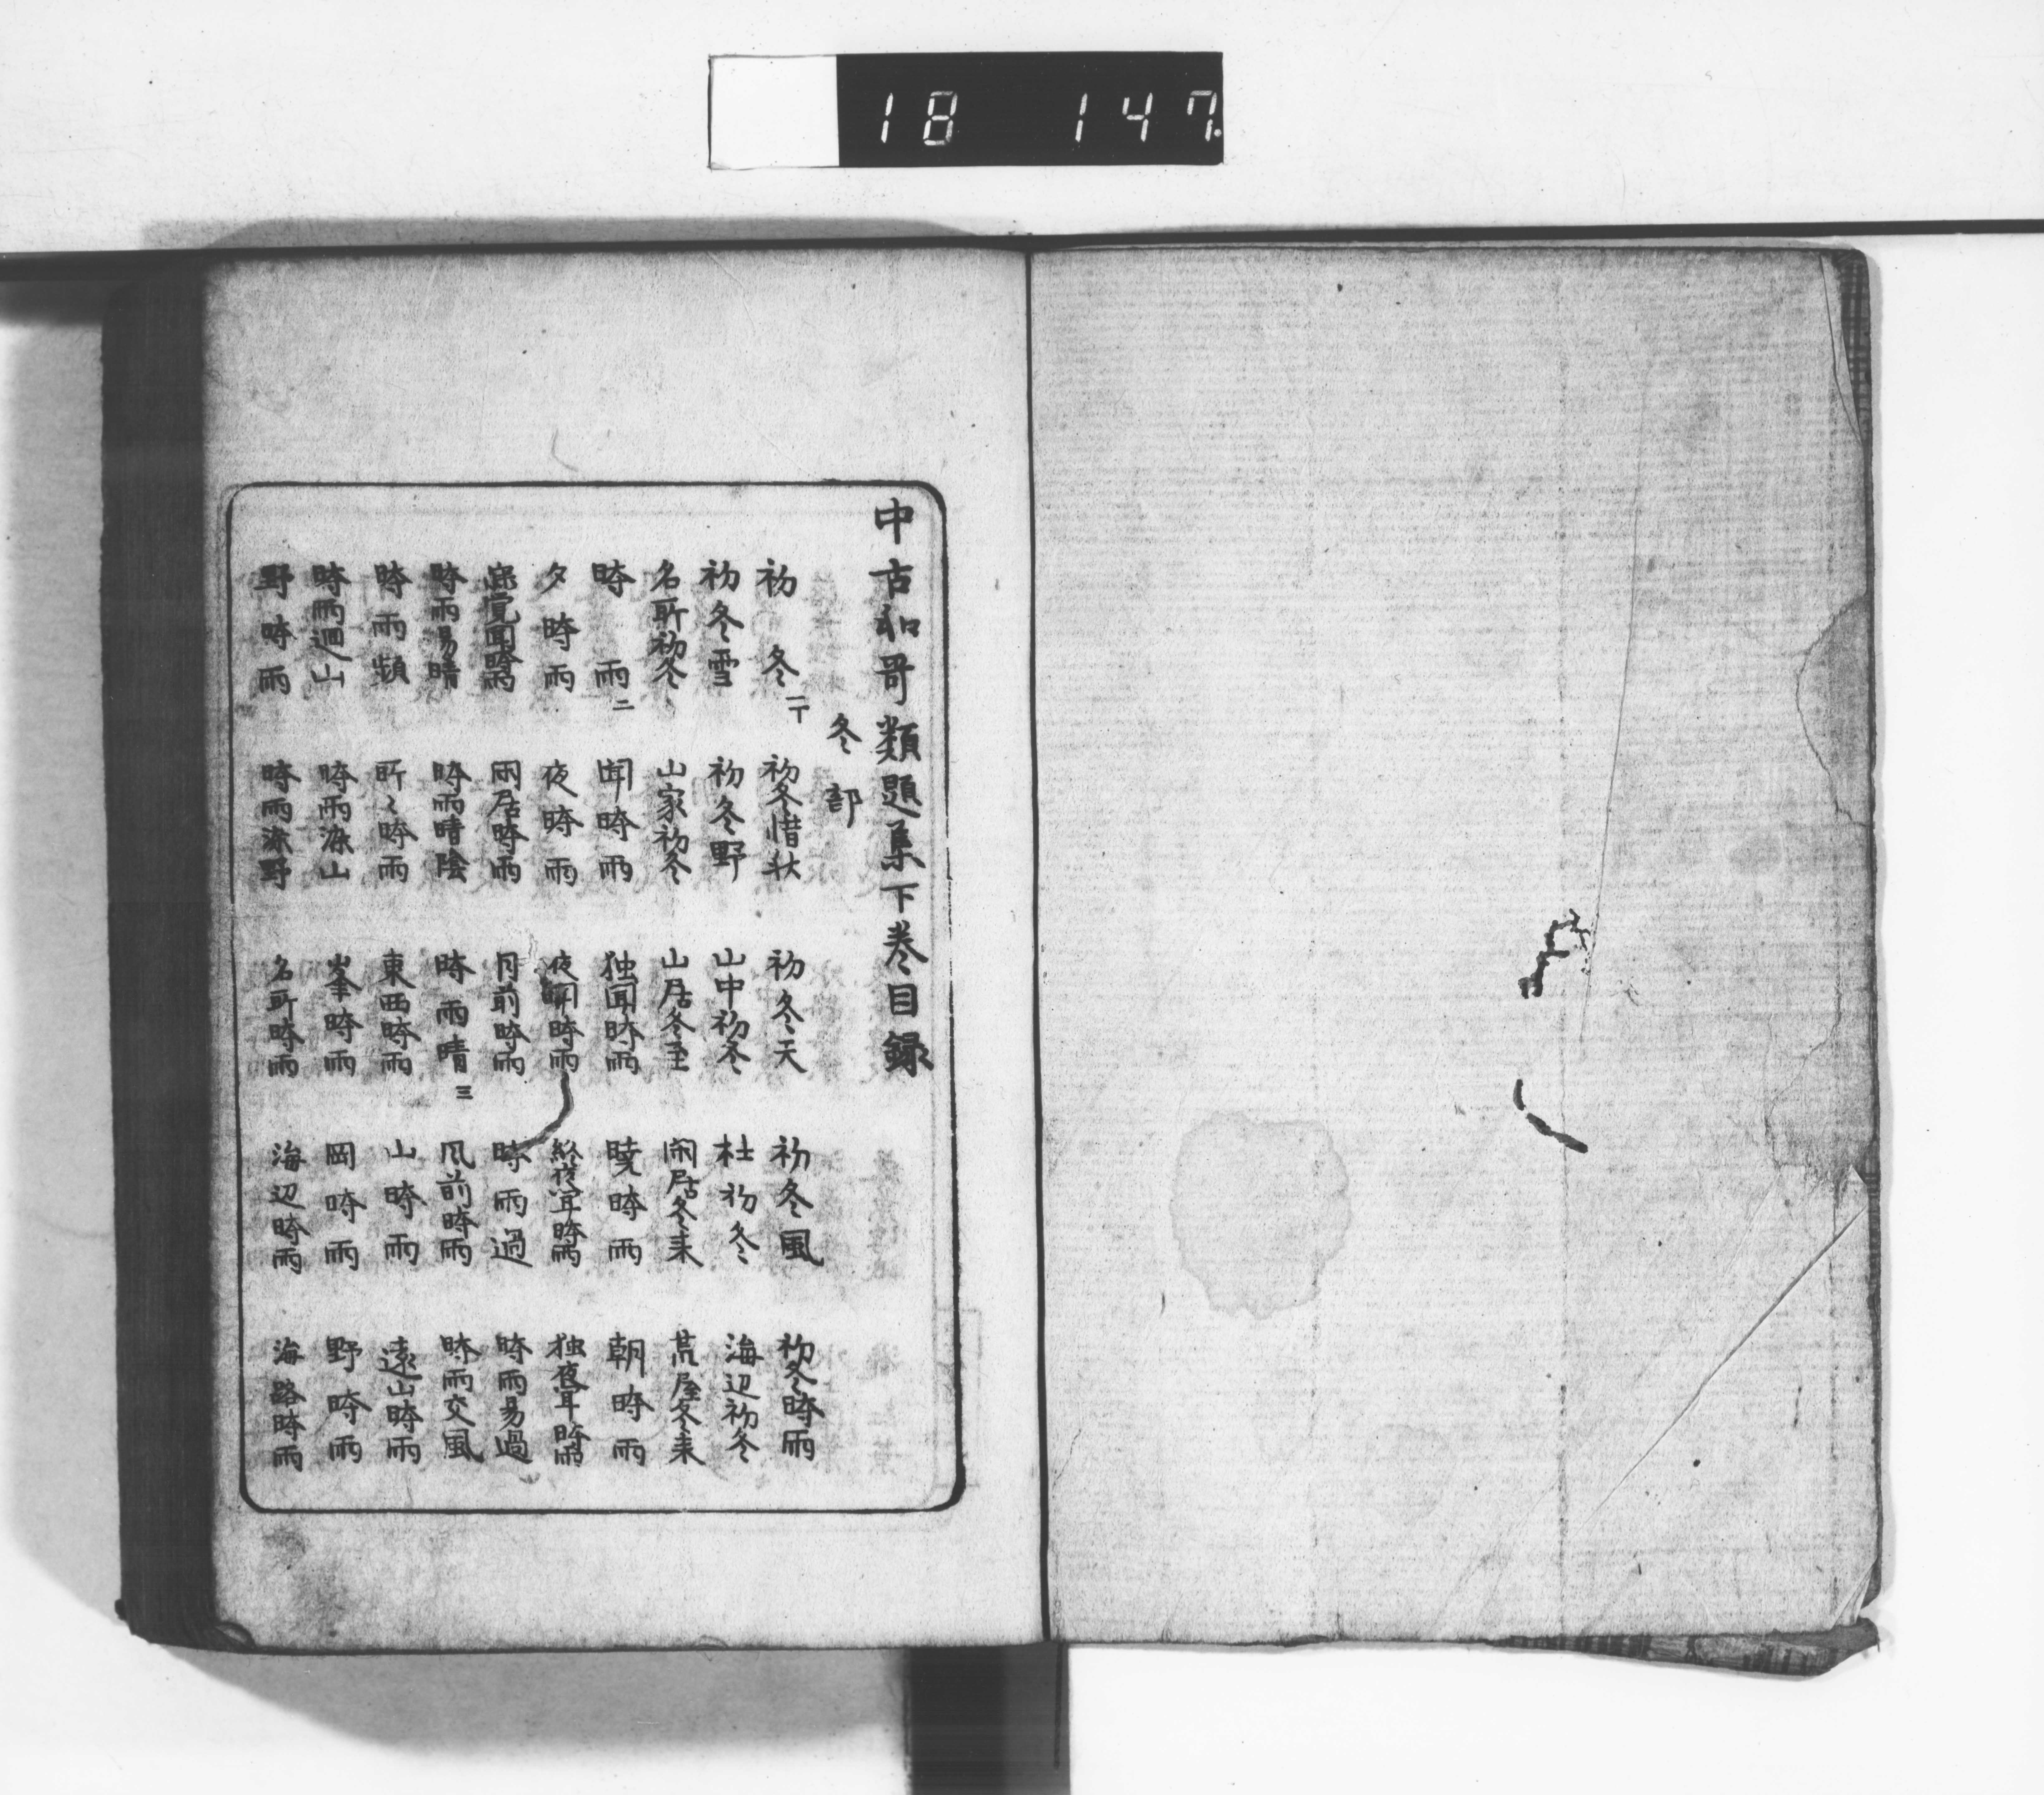 18 147
中古和哥類題集下巻目録
冬部
初冬 一丁 初冬惜秋 初冬天 初冬風 初冬時雨
初冬雪 初冬野 山中初冬 杜初冬 海辺初冬
名所初冬 山家初冬 山居冬至 閑居冬来 荒屋冬来
時雨 二 聞時雨 独聞時雨 暁時雨 朝時雨
夕時雨 夜時雨 夜聞時雨 終夜宜時雨 独夜耳時雨
寝覚聞時雨 閑居時雨 月前時雨 時雨過 時雨易過
時雨易晴 時雨晴陰 時雨晴 三 風前時雨 時雨交風
時雨頻 所〻時雨 東西時雨 山時雨 遠山時雨
時雨廻山 時雨染山 峯時雨 岡時雨 野時雨
野時雨 時雨染野 名所時雨 海辺時雨 海路時雨